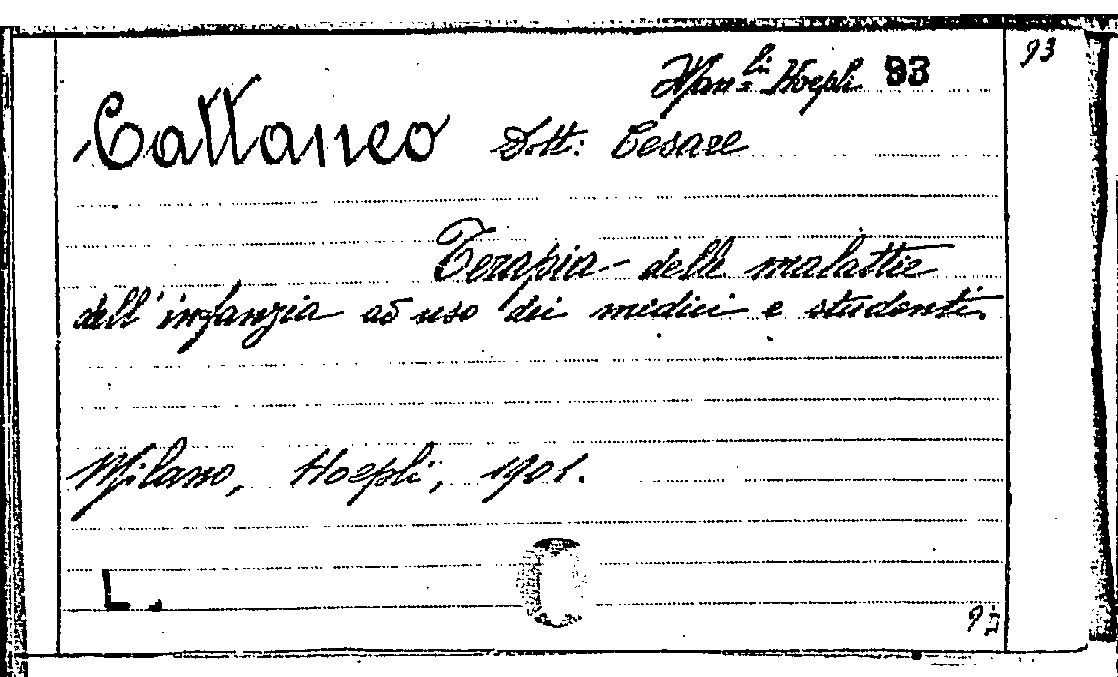 Man.li Hoepli 93 93
Cattaneo Dott: Cesare
Terapia delle malattie
dell'infanzia ad uso dei medici e studenti.
Milano, Hoepli, 1901.
L.